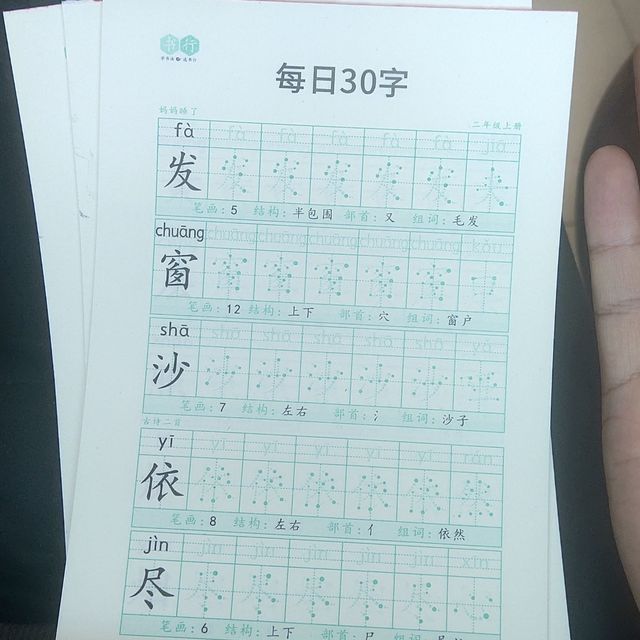 书行
每日30字
妈妈睡了
二年级上册
fà fà fà fà fà fà jiā
发
笔画：5 结构：半包围 部首：又 组词：毛发
chuāng chuāng chuāng chuāng chuāng chuāng kǒu
窗
笔画：12 结构：上下 部首：穴 组词：窗户
shā shā shā shā shā shā
沙
笔画：7 结构：左右 部首：氵 组词：沙子
古诗二首
yī yī yī yī yī yī rán
依
笔画：8 结构：左右 部首：亻 组词：依然
jìn jìn jìn jìn jìn jìn xīn
尽
笔画：6 结构：上下 部首：尸 组词：